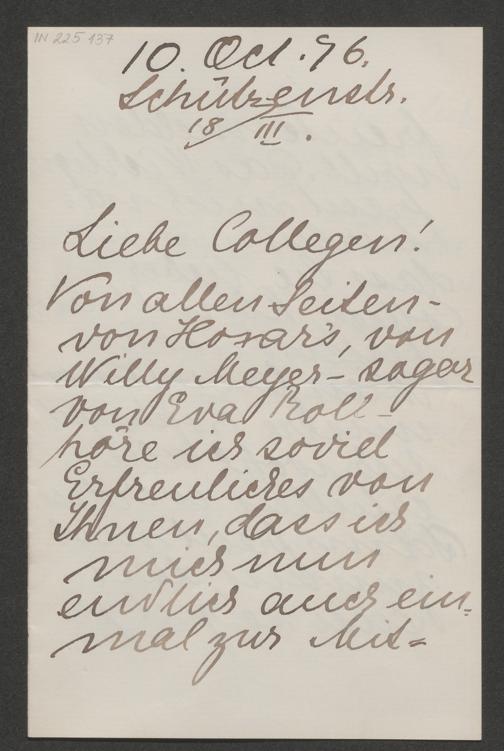 IN 225 437
10. Oct. 96.
Schützenstr.
18/III.
Liebe Collegen!
Von allen Seiten -
von Horar's, von
Willy Meyer - sogar
von Eva Boll -
höre ich soviel
Erfreuliches von
Ihnen, dass ich
mich nun
endlich auch ein-
mal zur Mit-